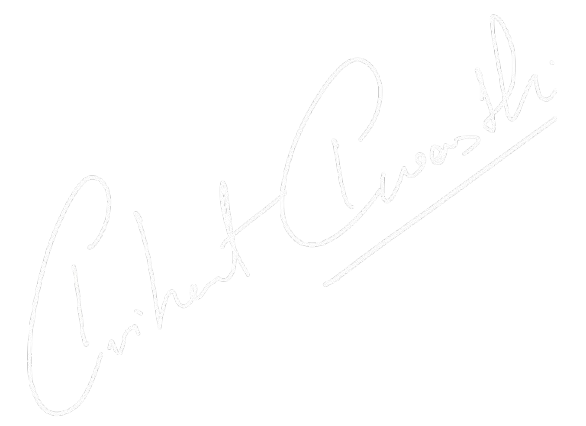 Arihant Awasthi